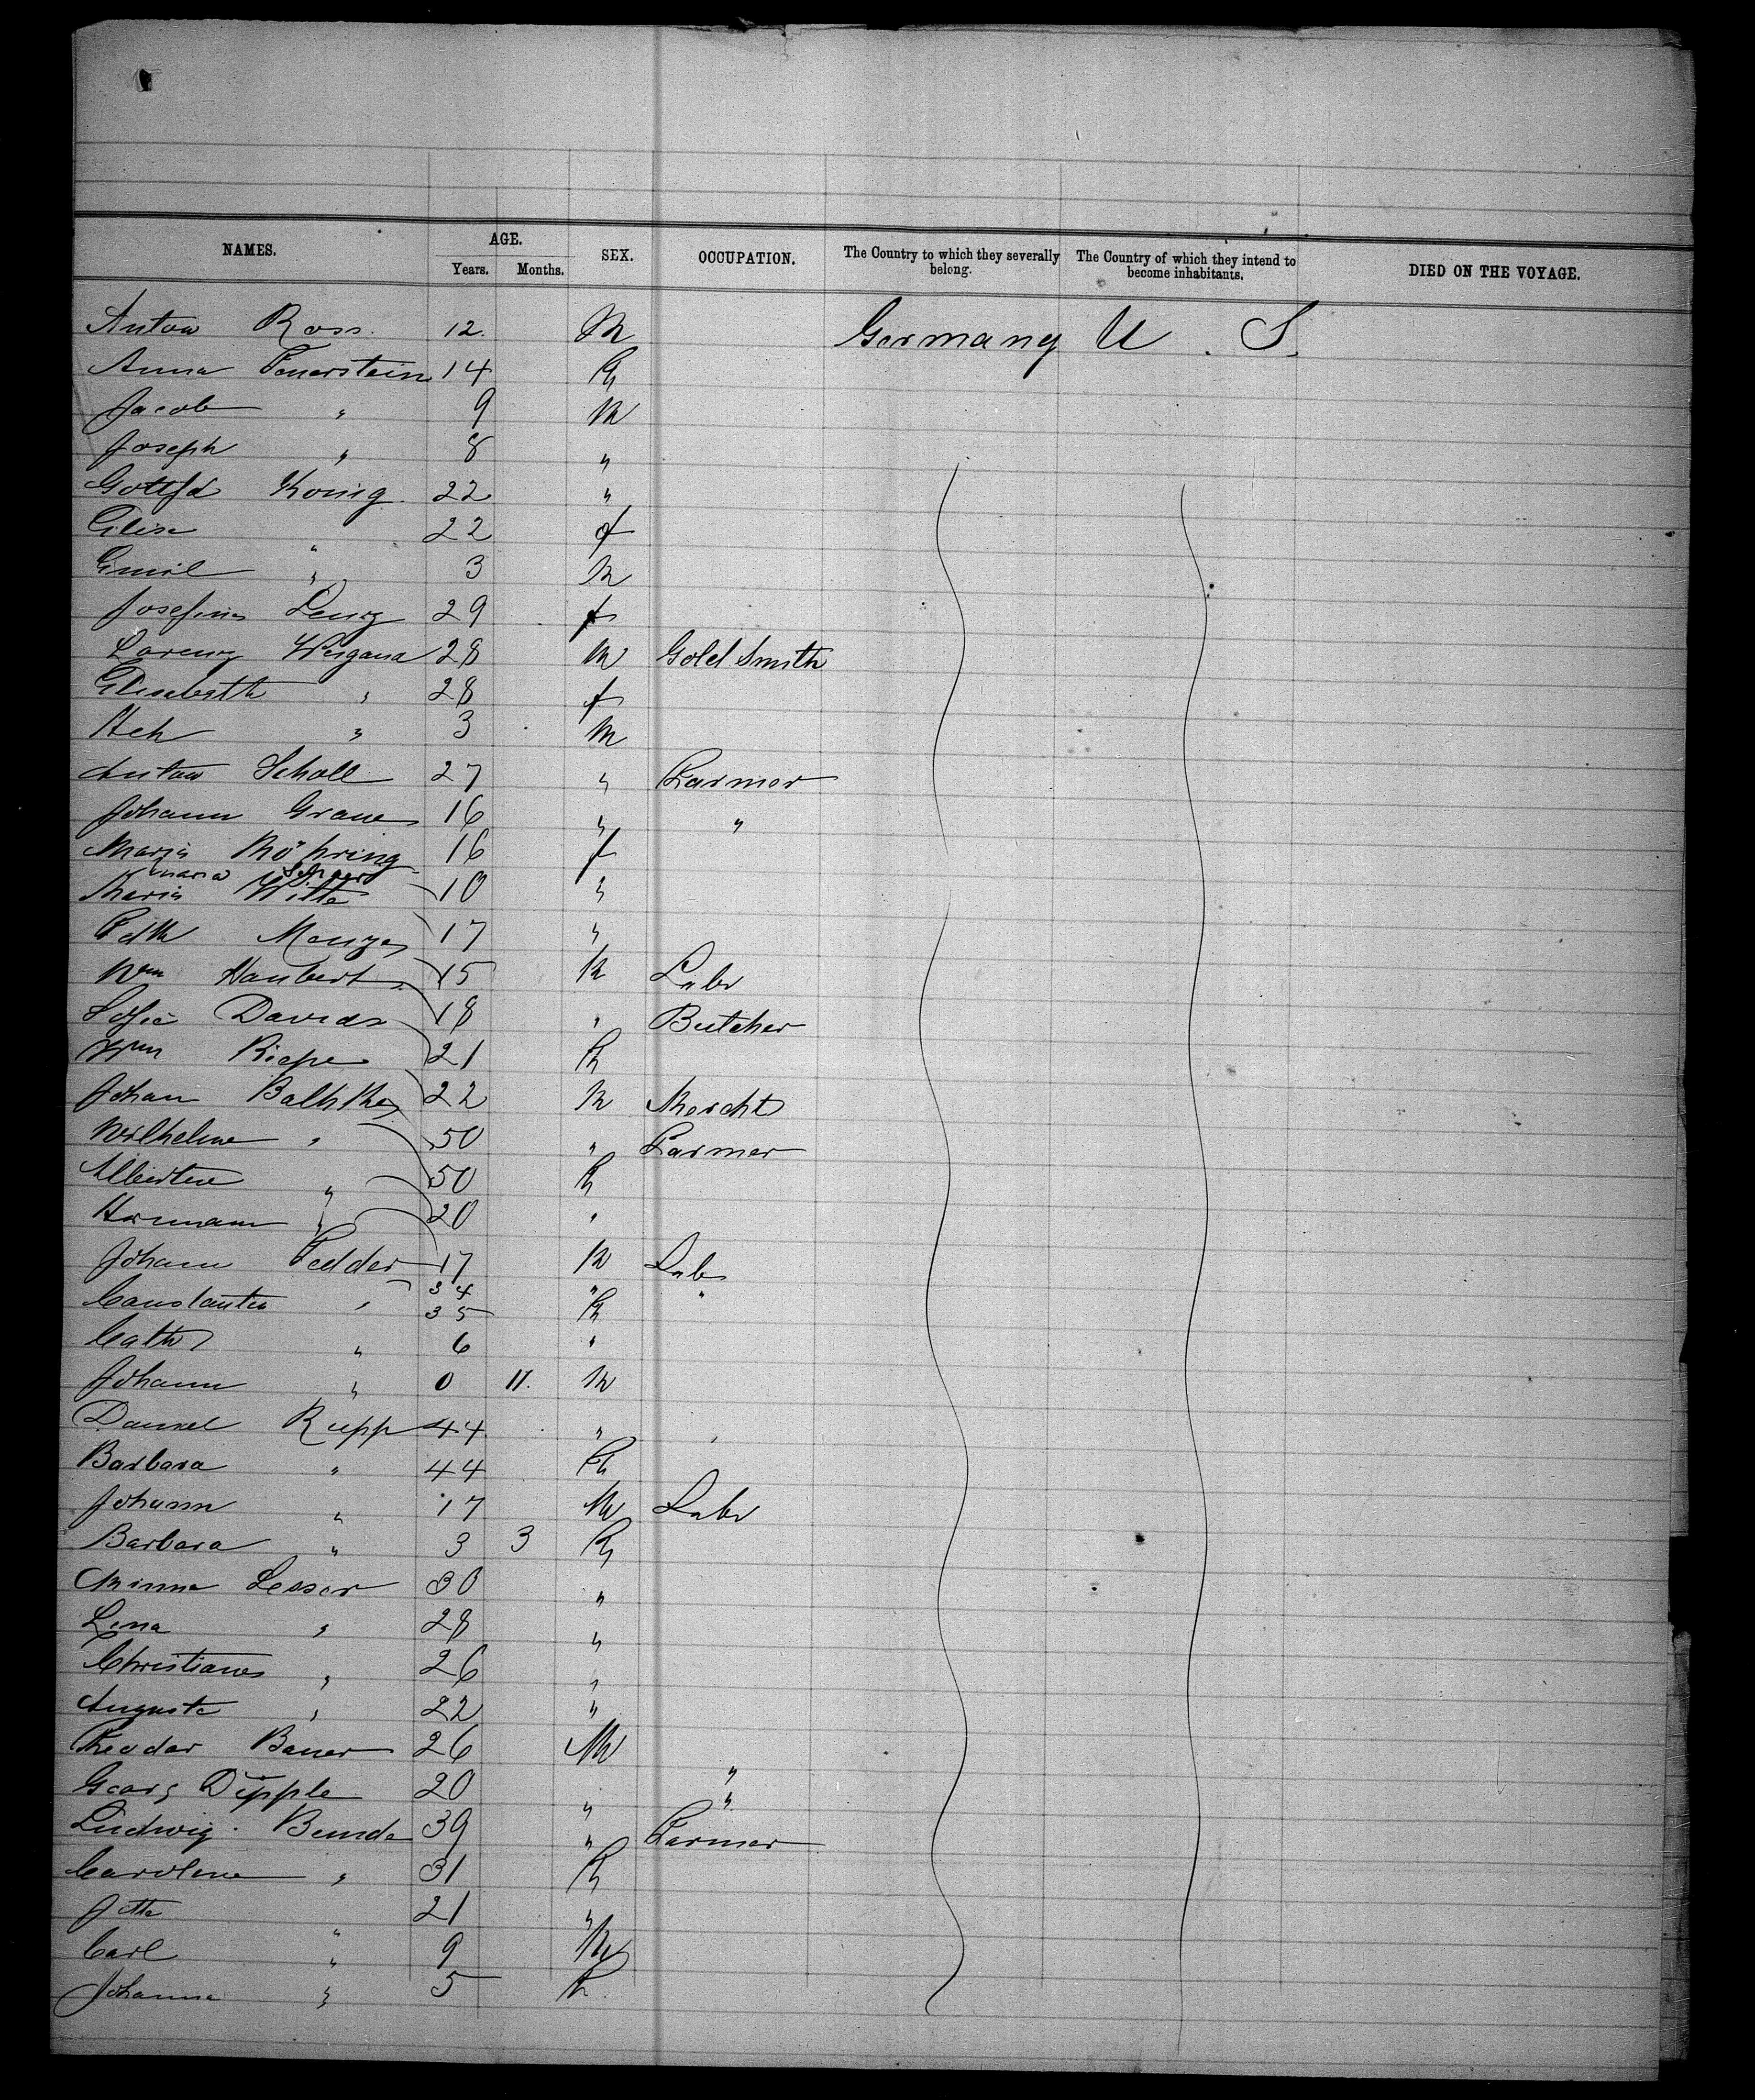 NAMES. AGE. SEX. OCCUPATION. The Country to which they severally belong. The Country of which they intend to become inhabitants. DIED ON THE VOYAGE.
Years. Months.
Anton Ross. 12. M Germany U. S.
Anna Feuerstein 14 F
Jacob " 9 M
Joseph " 8 "
Gottfd König 22 "
Elise " 22 f
Emil " 3 M
Josefine Lenz 29 f
Lorenz Weigand 28 M Gold Smith
Elisabeth " 28 f
Hch " 3 M
Anton Scholl 27 " Farmer
Johann Graue 16 " "
Maria Möhring 16 f
Maria
Maria Witte 10 "
Menze 17 "
Wm Haubert 15 M Labr
Sofie Davids 18 " Butcher
Wm Riepe 21 F
Johan 22 M Mercht
Wilhelm " 50 " Farmer
Albertine " 50 F
Hermann " 20 "
Johann Fedder 17 M Lab
Constantin " 34 " "
35 F
Cath " 6 "
Johann " 0 11. M
Daniel Rupp 44 " "
Barbara " 44 F
Johann " 17 M Labr
Barbara " 3 3 F
Minna Lesser 30 "
Lena " 28 "
Christiane " 26 "
Auguste " 22 "
Theodor Bauer 26 M "
Georg Dipple 20 " "
Ludwig Bende 39 " Farmer
Caroline " 31 F
Jette " 21 "
Carl " 9 M
Johanna " 5 F